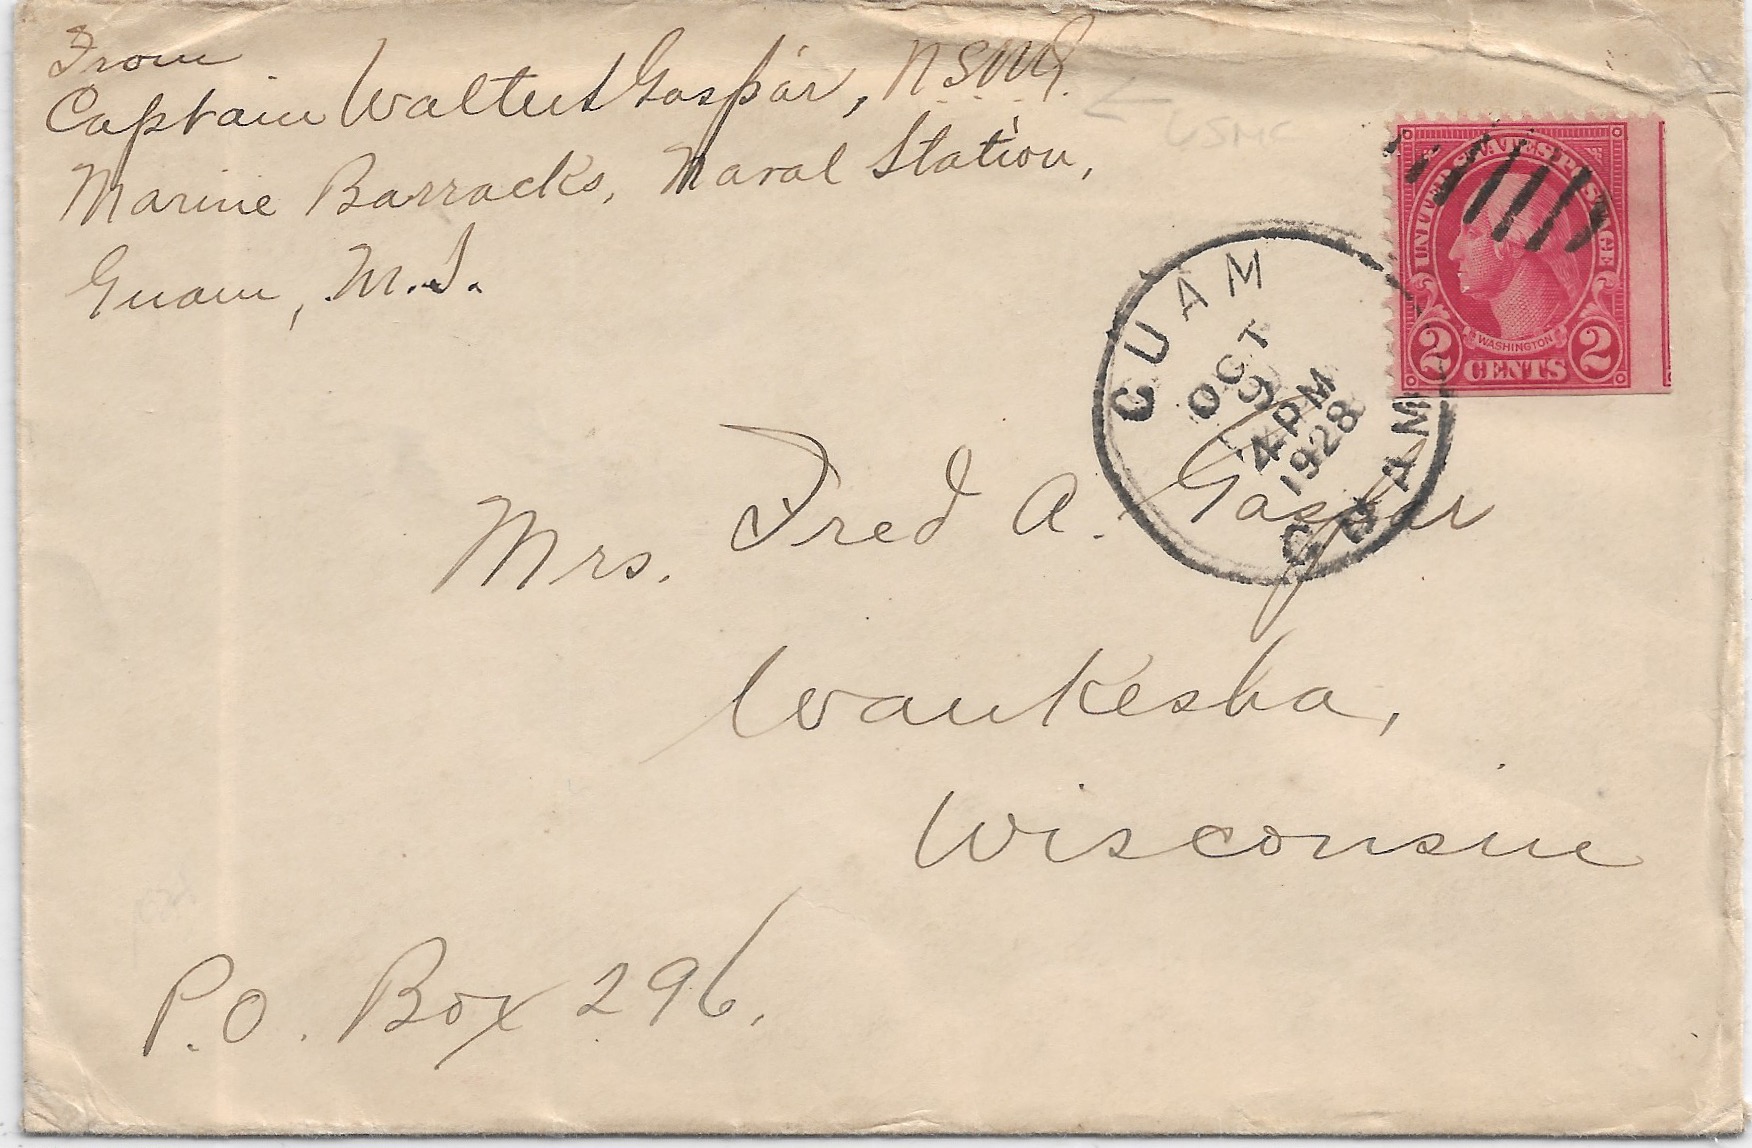 From
Captain Walter Gaspar,
Marine Barracks, Naval Station,
Guam, M.I.
USMC
UNITED STATES POSTAGE
WASHINGTON
2 CENTS 2
GUAM
OCT
9
4 PM
1928
GUAM
Mrs. Fred A. Gaspar
Waukesha,
Wisconsin
P.O. Box 296.